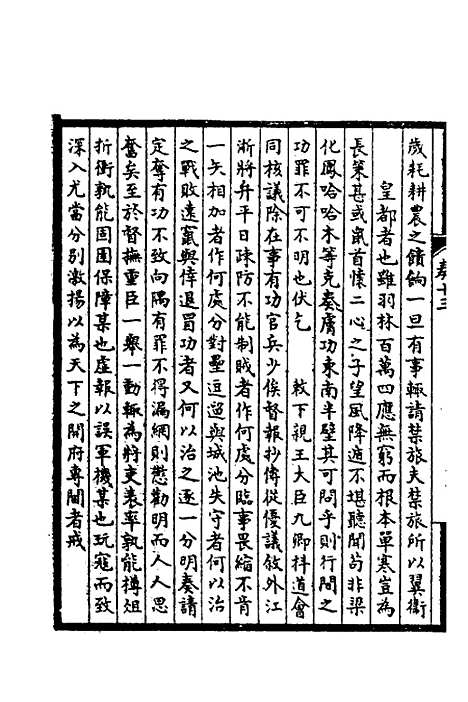 歲耗耕農之饋餉一旦有事輒請禁旅夫禁旅所以翼衛
皇都者也雖羽林百萬四應無窮而根本單寒豈為
長策甚或鼠首懷二心之子望風降遁不堪聽聞苟非梁
化鳳哈哈木等克奏膚功東南半壁其可問乎則行間之
功罪不可不明也伏乞　　敕下親王大臣九卿科道會
同核議除在事有功官兵少俟督報抄傳從優議敘外江
浙將弁平日疎防不能制賊者作何處分臨事畏縮不肯
一矢相加者作何處分對壘逗遛與城池失守者何以治
之戰敗遠竄與倖退冒功者又何以治之逐一分明奏請
定奪有功不致向隅有罪不得漏網則懲勸明而人人思
奮矣至於督撫重臣一舉一動輒為將吏表率孰能樽俎
折衝孰能固圉保障某也虛報以誤軍機某也玩寇而致
深入尤當分別激揚以為天下之開府專閫者戒
卷十三